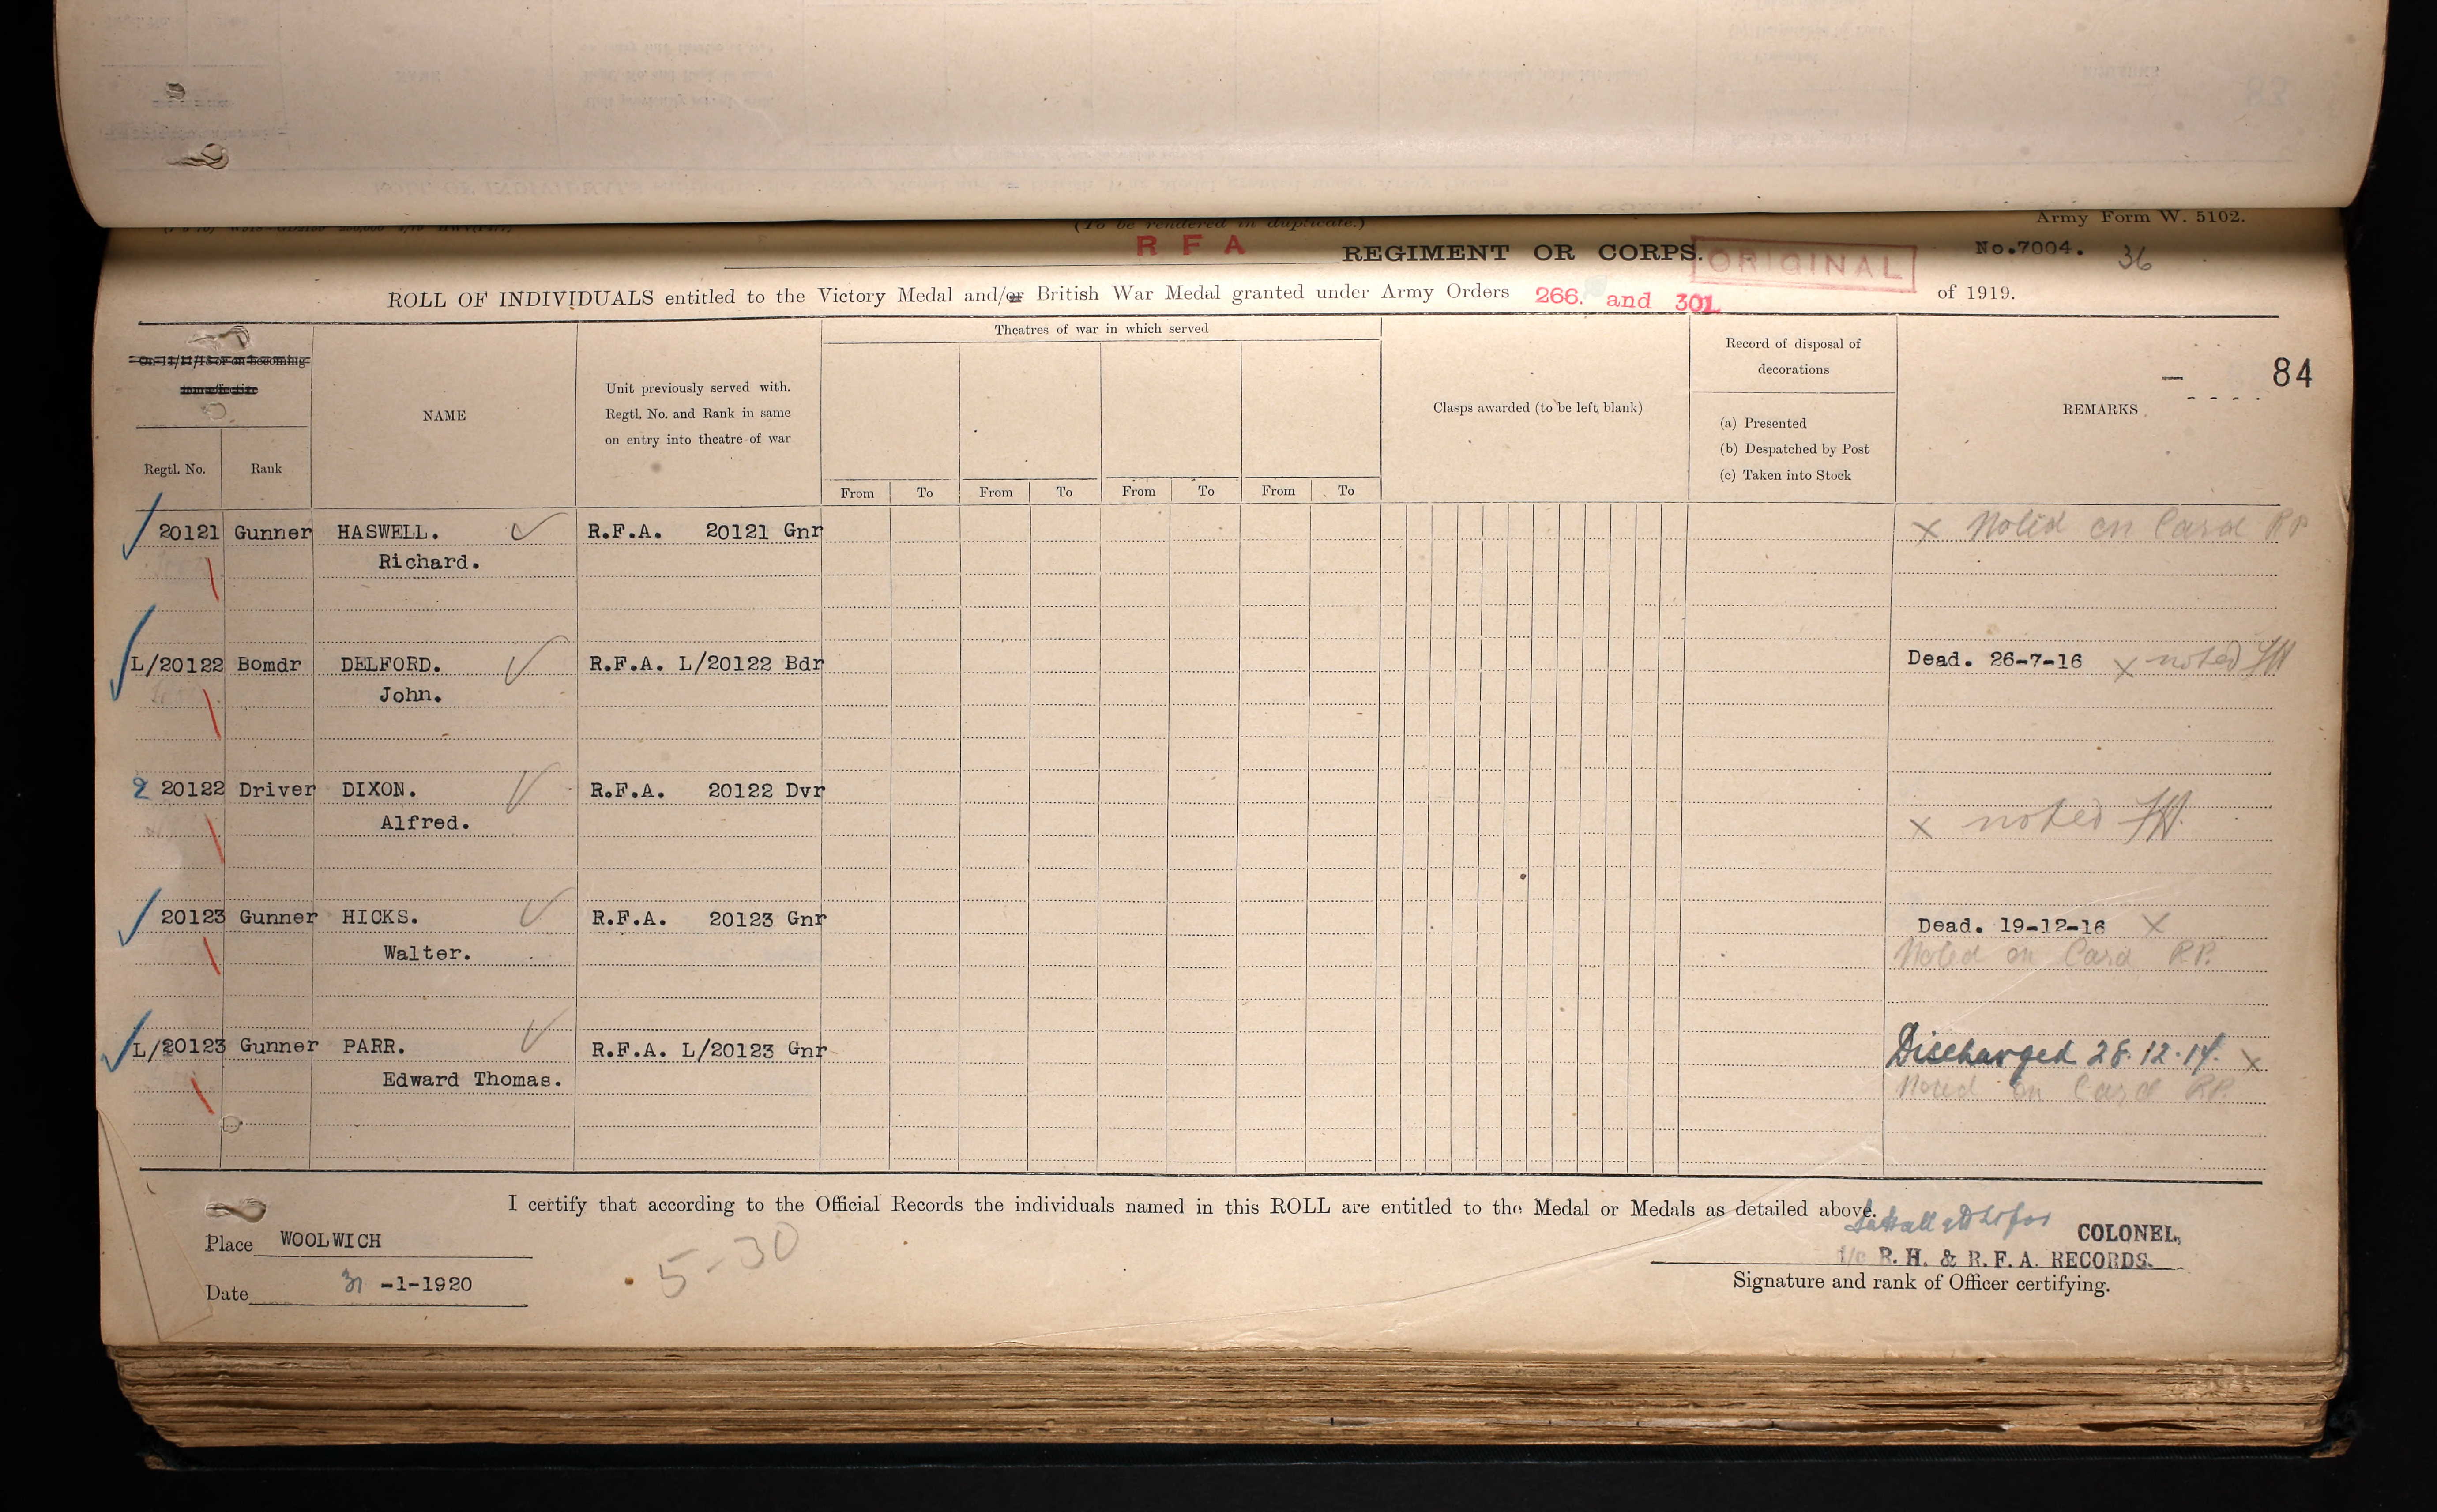 (To be rendered in duplicate.)
Army Form W. 5102.
R F A REGIMENT OR CORPS. ORIGINAL No.7004. 36
ROLL OF INDIVIDUALS entitled to the Victory Medal and/or British War Medal granted under Army Orders 266. and 301 of 1919.
84
On 11/11/18 or on becoming
non-effective
Regtl. No. Rank
NAME
Unit previously served with.
Regtl. No. and Rank in same
on entry into theatre of war
Theatres of war in which served
From To From To From To From To
Clasps awarded (to be left blank)
Record of disposal of
decorations
(a) Presented
(b) Despatched by Post
(c) Taken into Stock
REMARKS
20121 Gunner HASWELL. R.F.A. 20121 Gnr x Noted on Card RP
Richard.
L/20122 Bomdr DELFORD. R.F.A. L/20122 Bdr Dead. 26-7-16 x noted
John.
2 20122 Driver DIXON. R.F.A. 20122 Dvr
Alfred. x noted
20123 Gunner HICKS. R.F.A. 20123 Gnr Dead. 19-12-16 x
Walter. Noted on Card RP.
L/20123 Gunner PARR. R.F.A. L/20123 Gnr Discharged 28.12.14. x
Edward Thomas. Noted on Card RP.
I certify that according to the Official Records the individuals named in this ROLL are entitled to the Medal or Medals as detailed above.
Place WOOLWICH
5-30
COLONEL,
i/c R. H. & R. F. A. RECORDS.
Date 31 -1-1920
Signature and rank of Officer certifying.